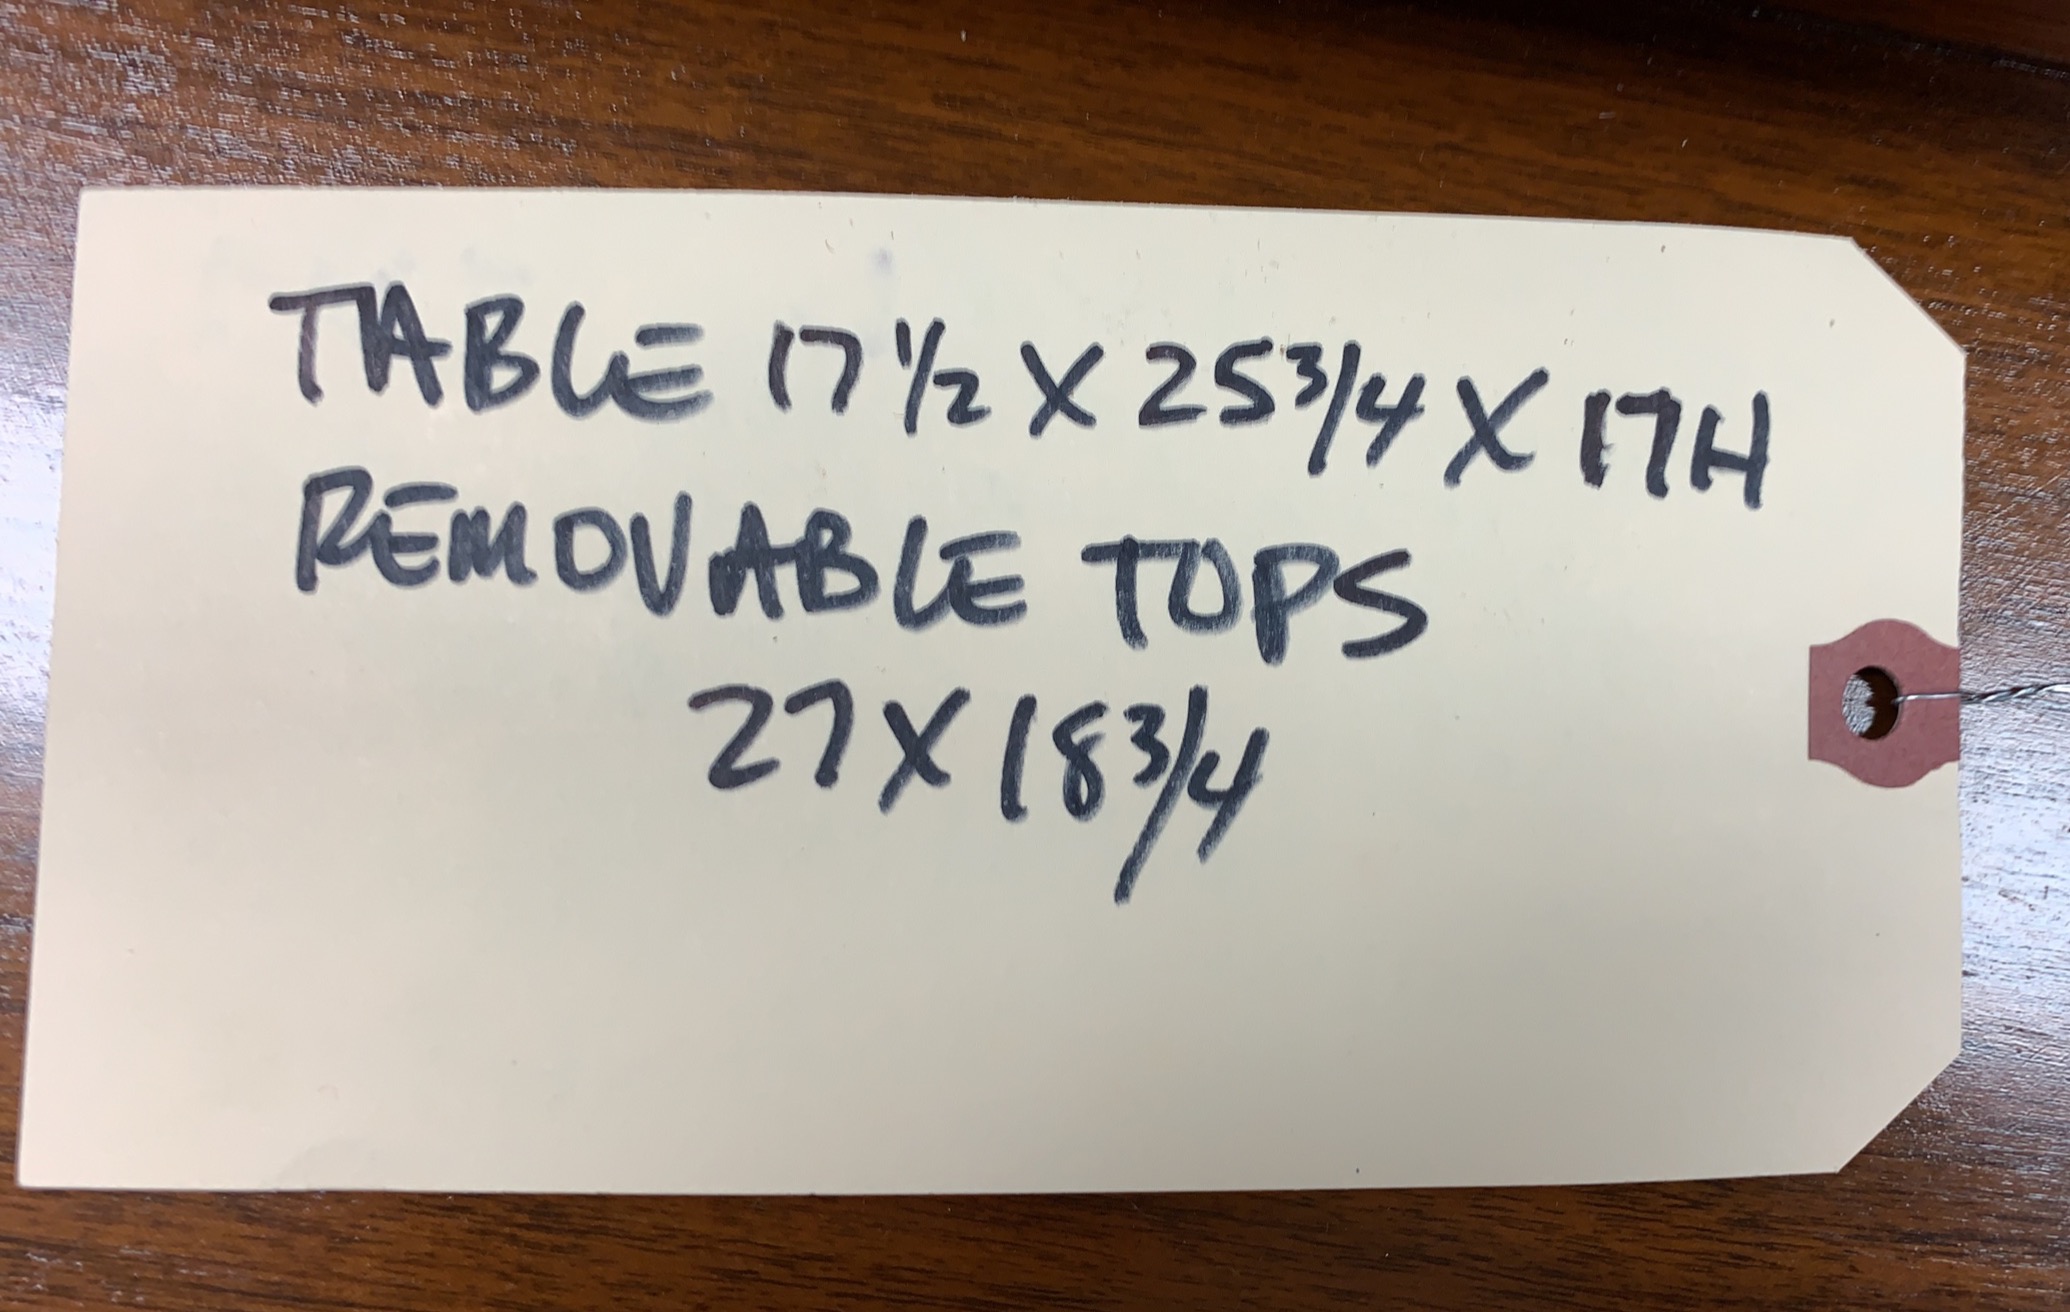 TABLE 17 1/2 X 25 3/4 X 17H
REMOVABLE TOPS
27 X 18 3/4